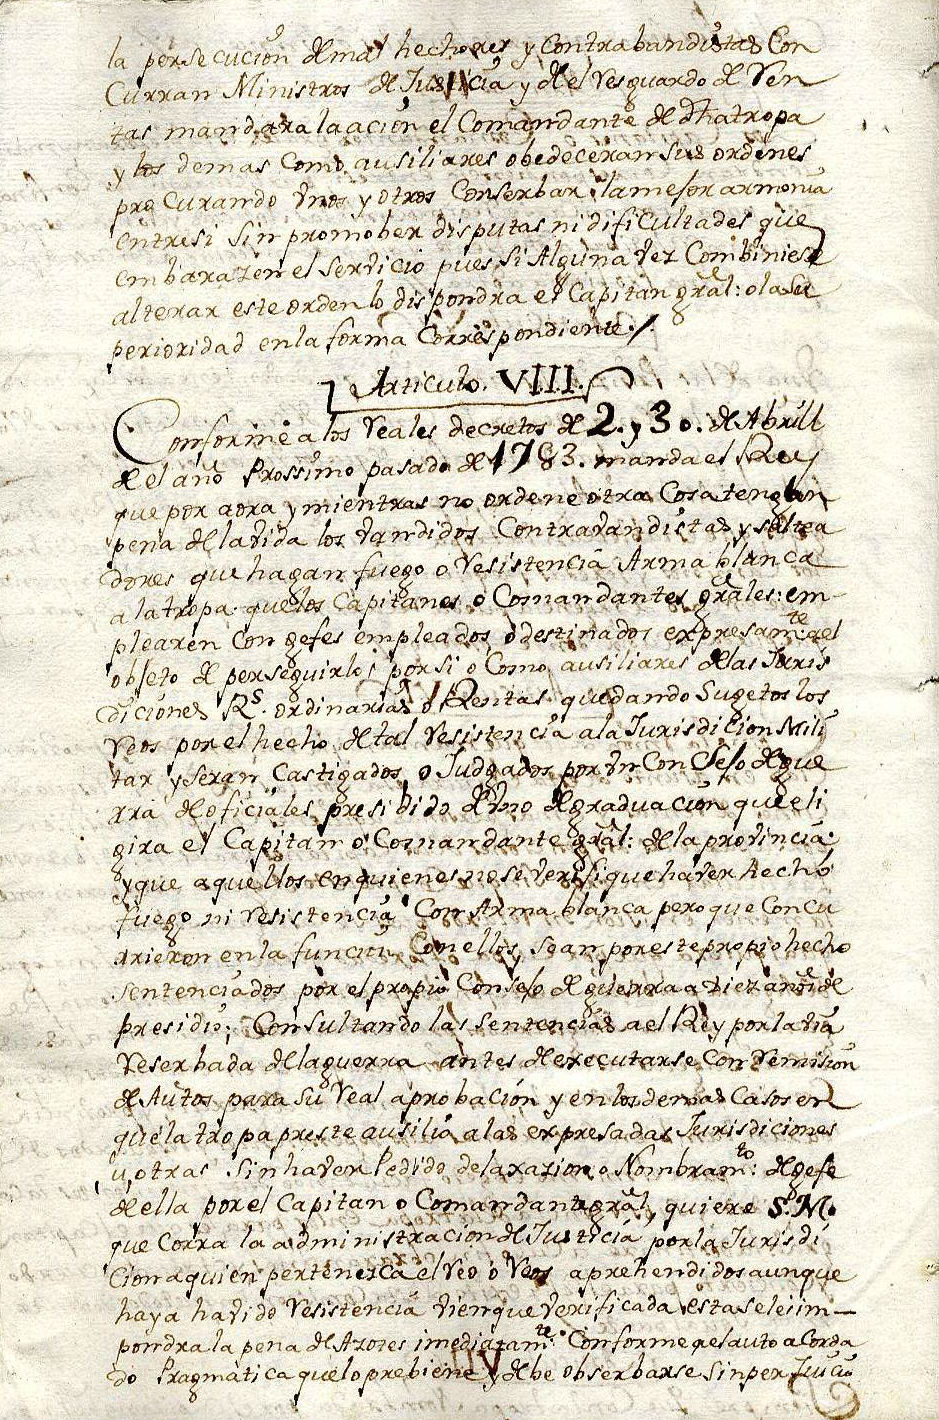 la persecucion de mal hechores y Contrabandistas Con
Curran Ministros de Justicia y del Vesguardo de Ven
tas mandara la acion el Comandante de dha tropa
y los demas Como ausiliares obedeceran sus ordenes
procurando Vnos y otros Conserbar la mejor armonia
entresi sin promober disputas ni dificultades que
embarazen el servicio pues si Alguna vez Combiniese
alterar este orden lo dispondra el Capitan gral: o la Su
perioridad en la forma Correspondiente./
Articulo. VIII.
Conforme a los Veales decretos de 2. y 30. de Abrill
del el año Prossimo pasado de 1783. manda el Rey
que por aora y mientras no ordene otra Cosa tengan
pena de la vida los vandidos Contravandistas y saltea
dores que hagan fuego o Vesistencia Arma blanca
a la tropa que los Capitanes o Comandantes grales: em-
plearen Con gefes empleados o destinados expresamte. a el
objeto de perseguirlos por si o Como ausiliares de las Juris
diciones Rs. ordinarias o Rentas quedando Sugetos los
Veos por el hecho de tal Vesistencia a la Jurisdicion Mili
tar y seran Castigados o Judgados por vn Consejo de gue
rra de oficiales presidido de Vno de graduacion que eli
gira el Capitan o Comandante gral: de la provincia:
y que aquellos en quienes no se verifique haver hecho
fuego ni Vesistencia Con Arma blanca pero que Concu
rrieron en la funcion Con ellos, sean por este propio hecho
sentenciados por el propio Consejo de guerra a diez años de
presidio; Consultando las sentencias a el Rey por la via
Veserbada de la guerra antes de executarse Con Vemision
de Autos para su Veal aprobacion y en los demas Casos en
que la tropa preste ausilio a las expresadas Jurisdiciones
u, otras sin haver Pedido de la razion o Nombramto: de gefe
de ella por el Capitan o Comandante gral, quiere S. M.
que Corra la administracion de Justicia por la Jurisdi
Cion a quien pertenezca el Veo o Veos aprehendidos aunque
haya havido Vesistencia vien que verificada esta se le im-
pondra la pena de Azotes imediatamte. Conforme a el auto a Corda
do Pragmatica que lo prebiene y debe obserbarse sin per Juicio